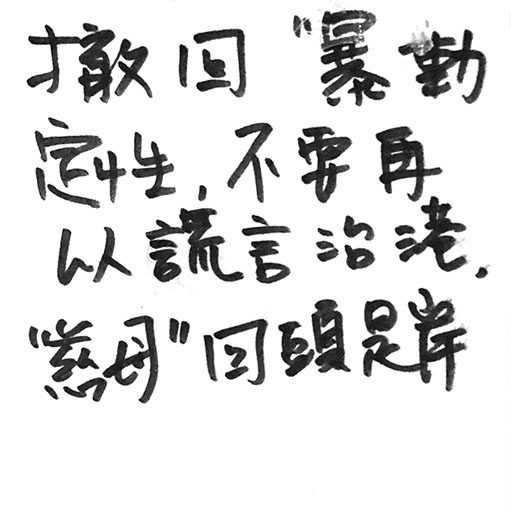 撤回"暴動
定性,不要再
以謊言治港.
"慈母"回頭是岸